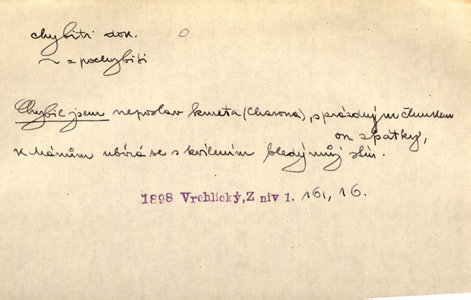 chybiti dok.
~ = pochybiti
Chybil jsem neposlav kmeta (Charona), s prázdným člunkem
on zpátky,
k Mánům ubírá se s kvílením bledý můj stín.
1898 Vrchlický, Z niv 1. 161, 16.